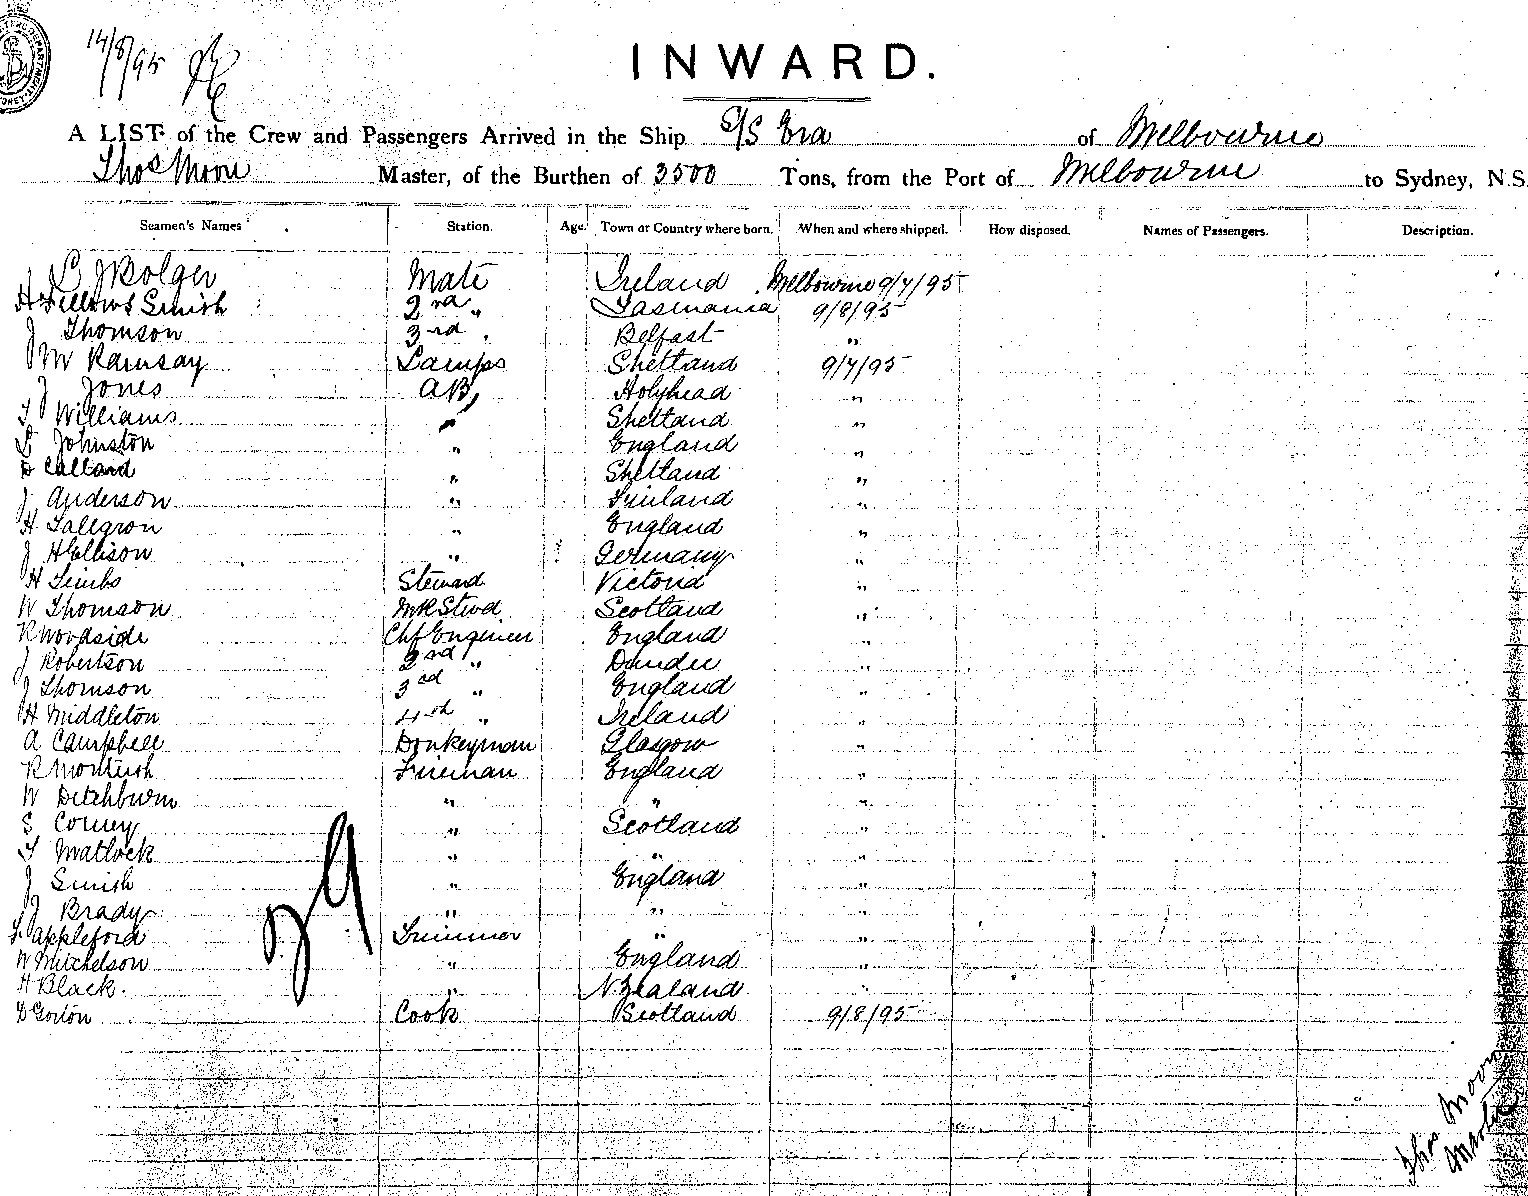 14/8/95
INWARD.
A LIST of the Crew and Passengers Arrived in the Ship S/S Era of Melbourne
Thos Moon Master, of the Burthen of 3500 Tons, from the Port of Melbourne to Sydney, N.S.
Seamen's Names Station. Age. Town or Country where born. When and where shipped. How disposed. Names of Passengers. Description.
J Bolger Mate Ireland Melbourne 9/7/95
H Fellows Smith 2nd " Tasmania 9/8/95
J Thomson 3rd " Belfast "
M Ramsay Lamps Shetland 9/7/95
J Jones AB Holyhead "
T Williams " Shetland "
L Johnston " England "
D Calland " Shetland "
J Anderson " Finland "
H Tallgron " England "
J H Ellison " Germany "
H Timbs Steward Victoria "
W Thomson Scotland "
R Woodside Chf Engineer England "
J Robertson 2nd " Dundee "
J Thomson 3rd " England "
H Middleton 4th " Ireland "
A Campbell Donkeyman Glasgow "
R Monteith Fireman England "
W Ditchburn " " "
S Corney " Scotland "
T Matlock " " "
J Smith " England "
J Brady " " "
T. Appleford Trimmer " "
W Mitchelson " England "
H Black. " N. Zealand "
D Gorton Cook Scotland 9/8/95
29
Thos Moon
Master